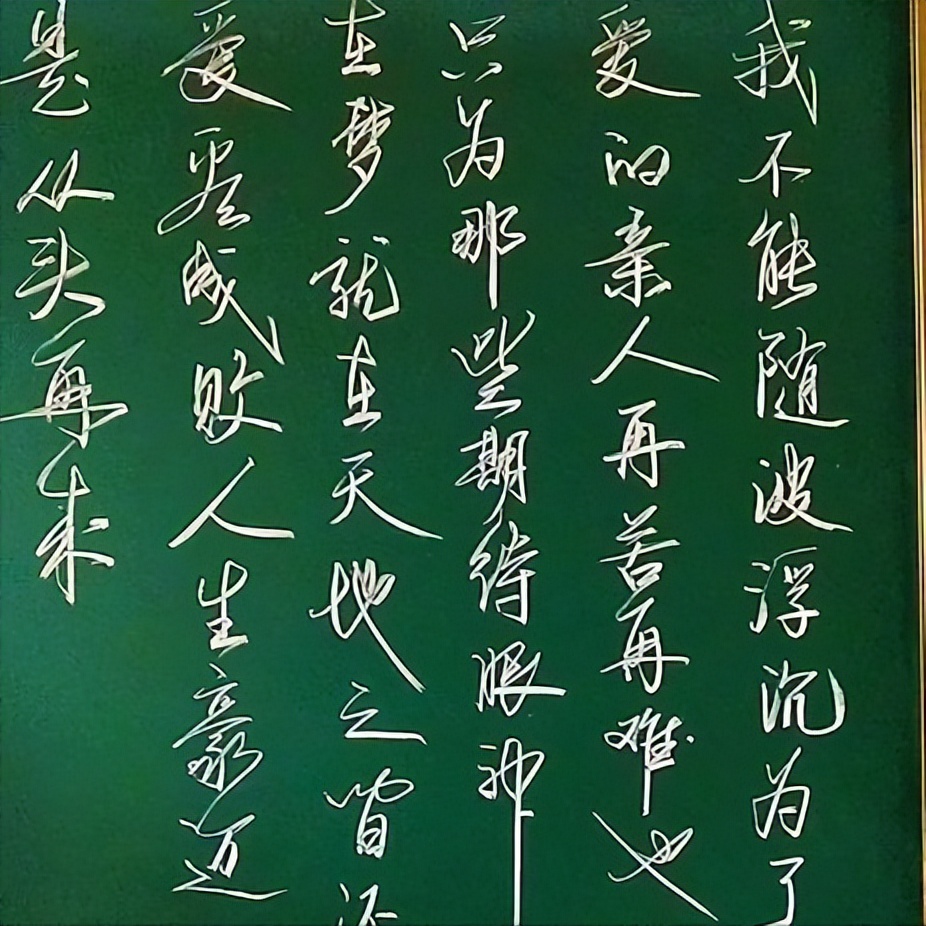 我不能随波浮沉为了
爱的亲人再苦再难也
只为那些期待眼神
在梦就在天地之间还
爱看成败人生豪迈
是从头再来